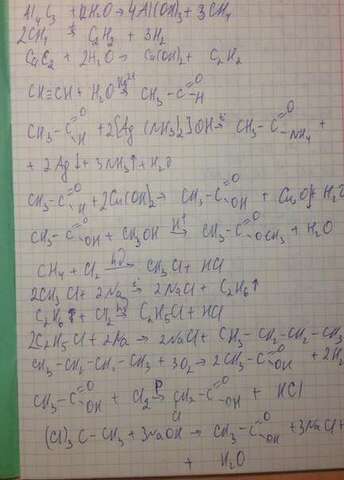 Al₄C₃ + 12H₂O → 4Al(OH)₃ + 3CH₄
2CH₄ → C₂H₂ + 3H₂
CaC₂ + 2H₂O → Ca(OH)₂ + C₂H₂
CH≡CH + H₂O →(Hg²⁺) CH₃-C(=O)-H
CH₃-C(=O)-H + 2[Ag(NH₃)₂]OH → CH₃-C(=O)-NH₄ +
+ 2Ag↓ + 3NH₃↑ + H₂O
CH₃-C(=O)-H + 2Cu(OH)₂ → CH₃-C(=O)-OH + H₂O
CH₃-C(=O)-OH + CH₃OH →(H⁺) CH₃-C(=O)-OCH₃ + H₂O
CH₄ + Cl₂ →(hν) CH₃Cl + HCl
2CH₃Cl + 2Na → 2NaCl + C₂H₆↑
C₂H₆↑ + Cl₂ →(hν) C₂H₅Cl + HCl
2C₂H₅Cl + 2Na → 2NaCl + CH₃-CH₂-CH₂-CH₃
CH₃-CH₂-CH₂-CH₃ + 3O₂ → 2CH₃-C(=O)-OH + 2H₂
CH₃-C(=O)-OH + Cl₂ →(P) CH₂(Cl)-C(=O)-OH + HCl
(Cl)₃C-CH₃ + 3NaOH → CH₃-C(=O)-OH + 3NaCl +
+ H₂O